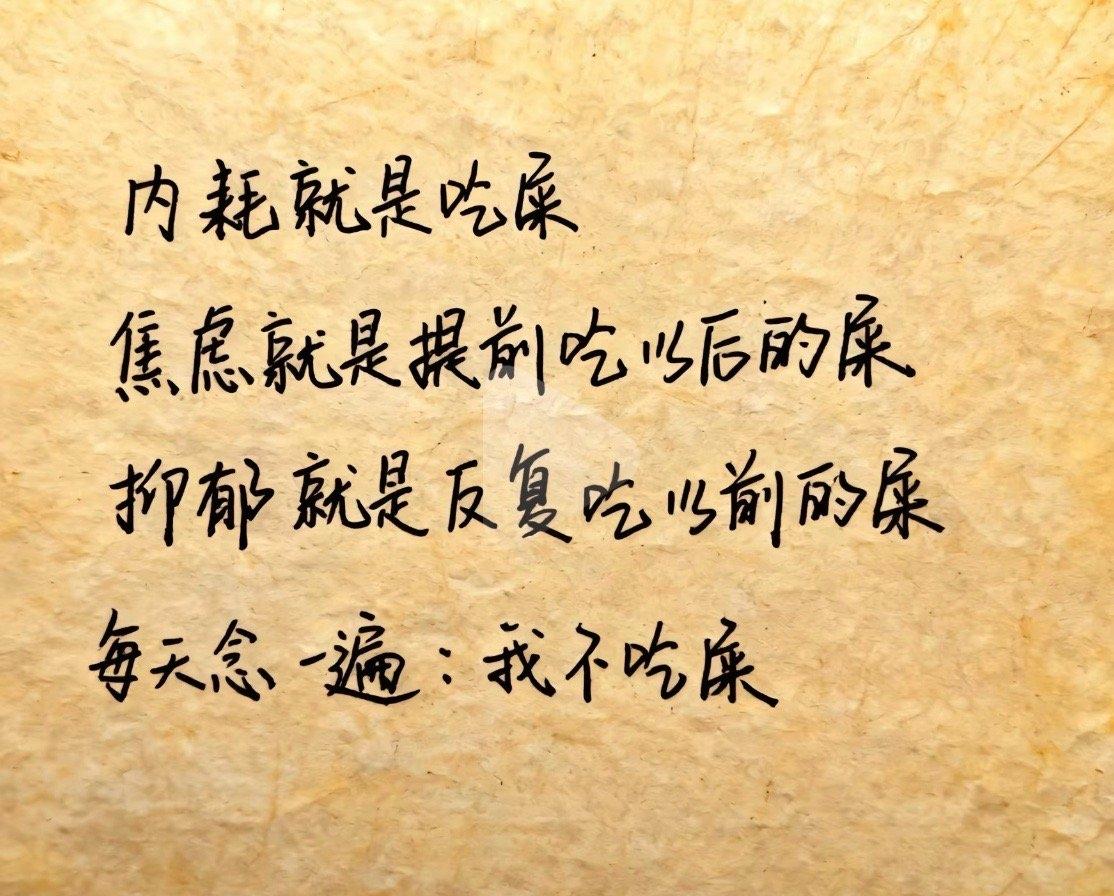 内耗就是吃屎
焦虑就是提前吃以后的屎
抑郁就是反复吃以前的屎
每天念一遍：我不吃屎